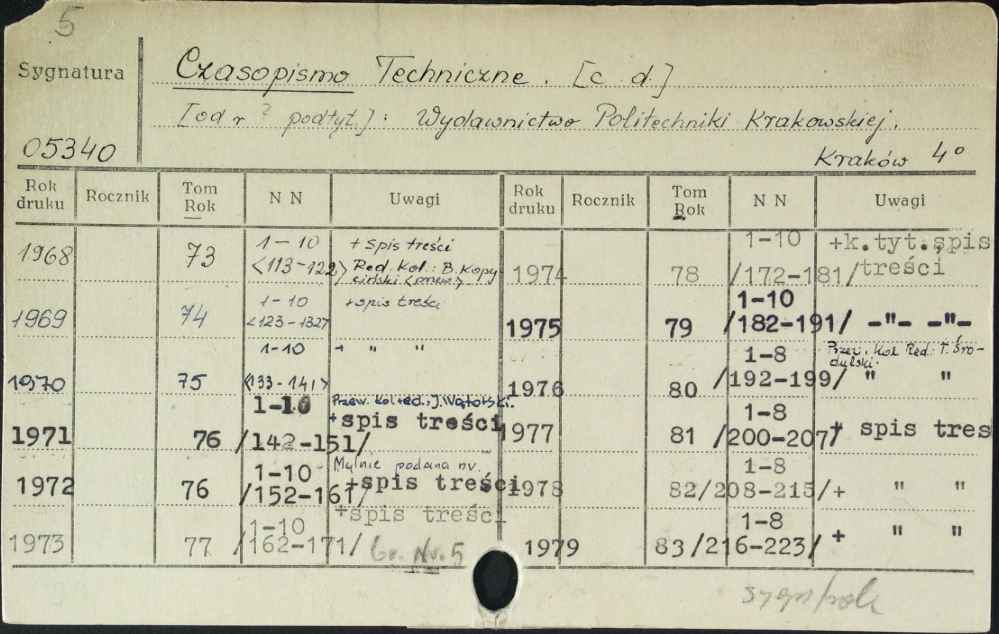 5
Sygnatura
Czasopismo Techniczne. [c d.]
[od r ? podtyt.]: Wydawnictwo Politechniki Krakowskiej.
05340
Kraków 4°
Rok druku Rocznik Tom Rok N N Uwagi Rok druku Rocznik Tom Rok N N Uwagi
1968 73 1-10 <113-122> + spis treści Red. Kol.: B. Kopyciński
1969 74 1-10 <123-132> + spis treści
1970 75 1-10 <133-141> + " "
1971 76 1-10 /142-151/ Przew. kol. red.: J. Wątorski. +spis treści
1972 76 1-10 /152-161/ Mylnie podana nr. +spis treści
1973 77 1-10 /162-171/ +spis treści Nr. 5
1974 78 1-10 /172-181/ +k.tyt.spis treści
1975 79 1-10 /182-191/ -"- -"-
1976 80 1-8 /192-199/ Przew. Kol. Red. T. Środulski. " "
1977 81 1-8 /200-207/ + spis tres
1978 82 1-8 /208-215/ + " "
1979 83 1-8 /216-223/ + " "